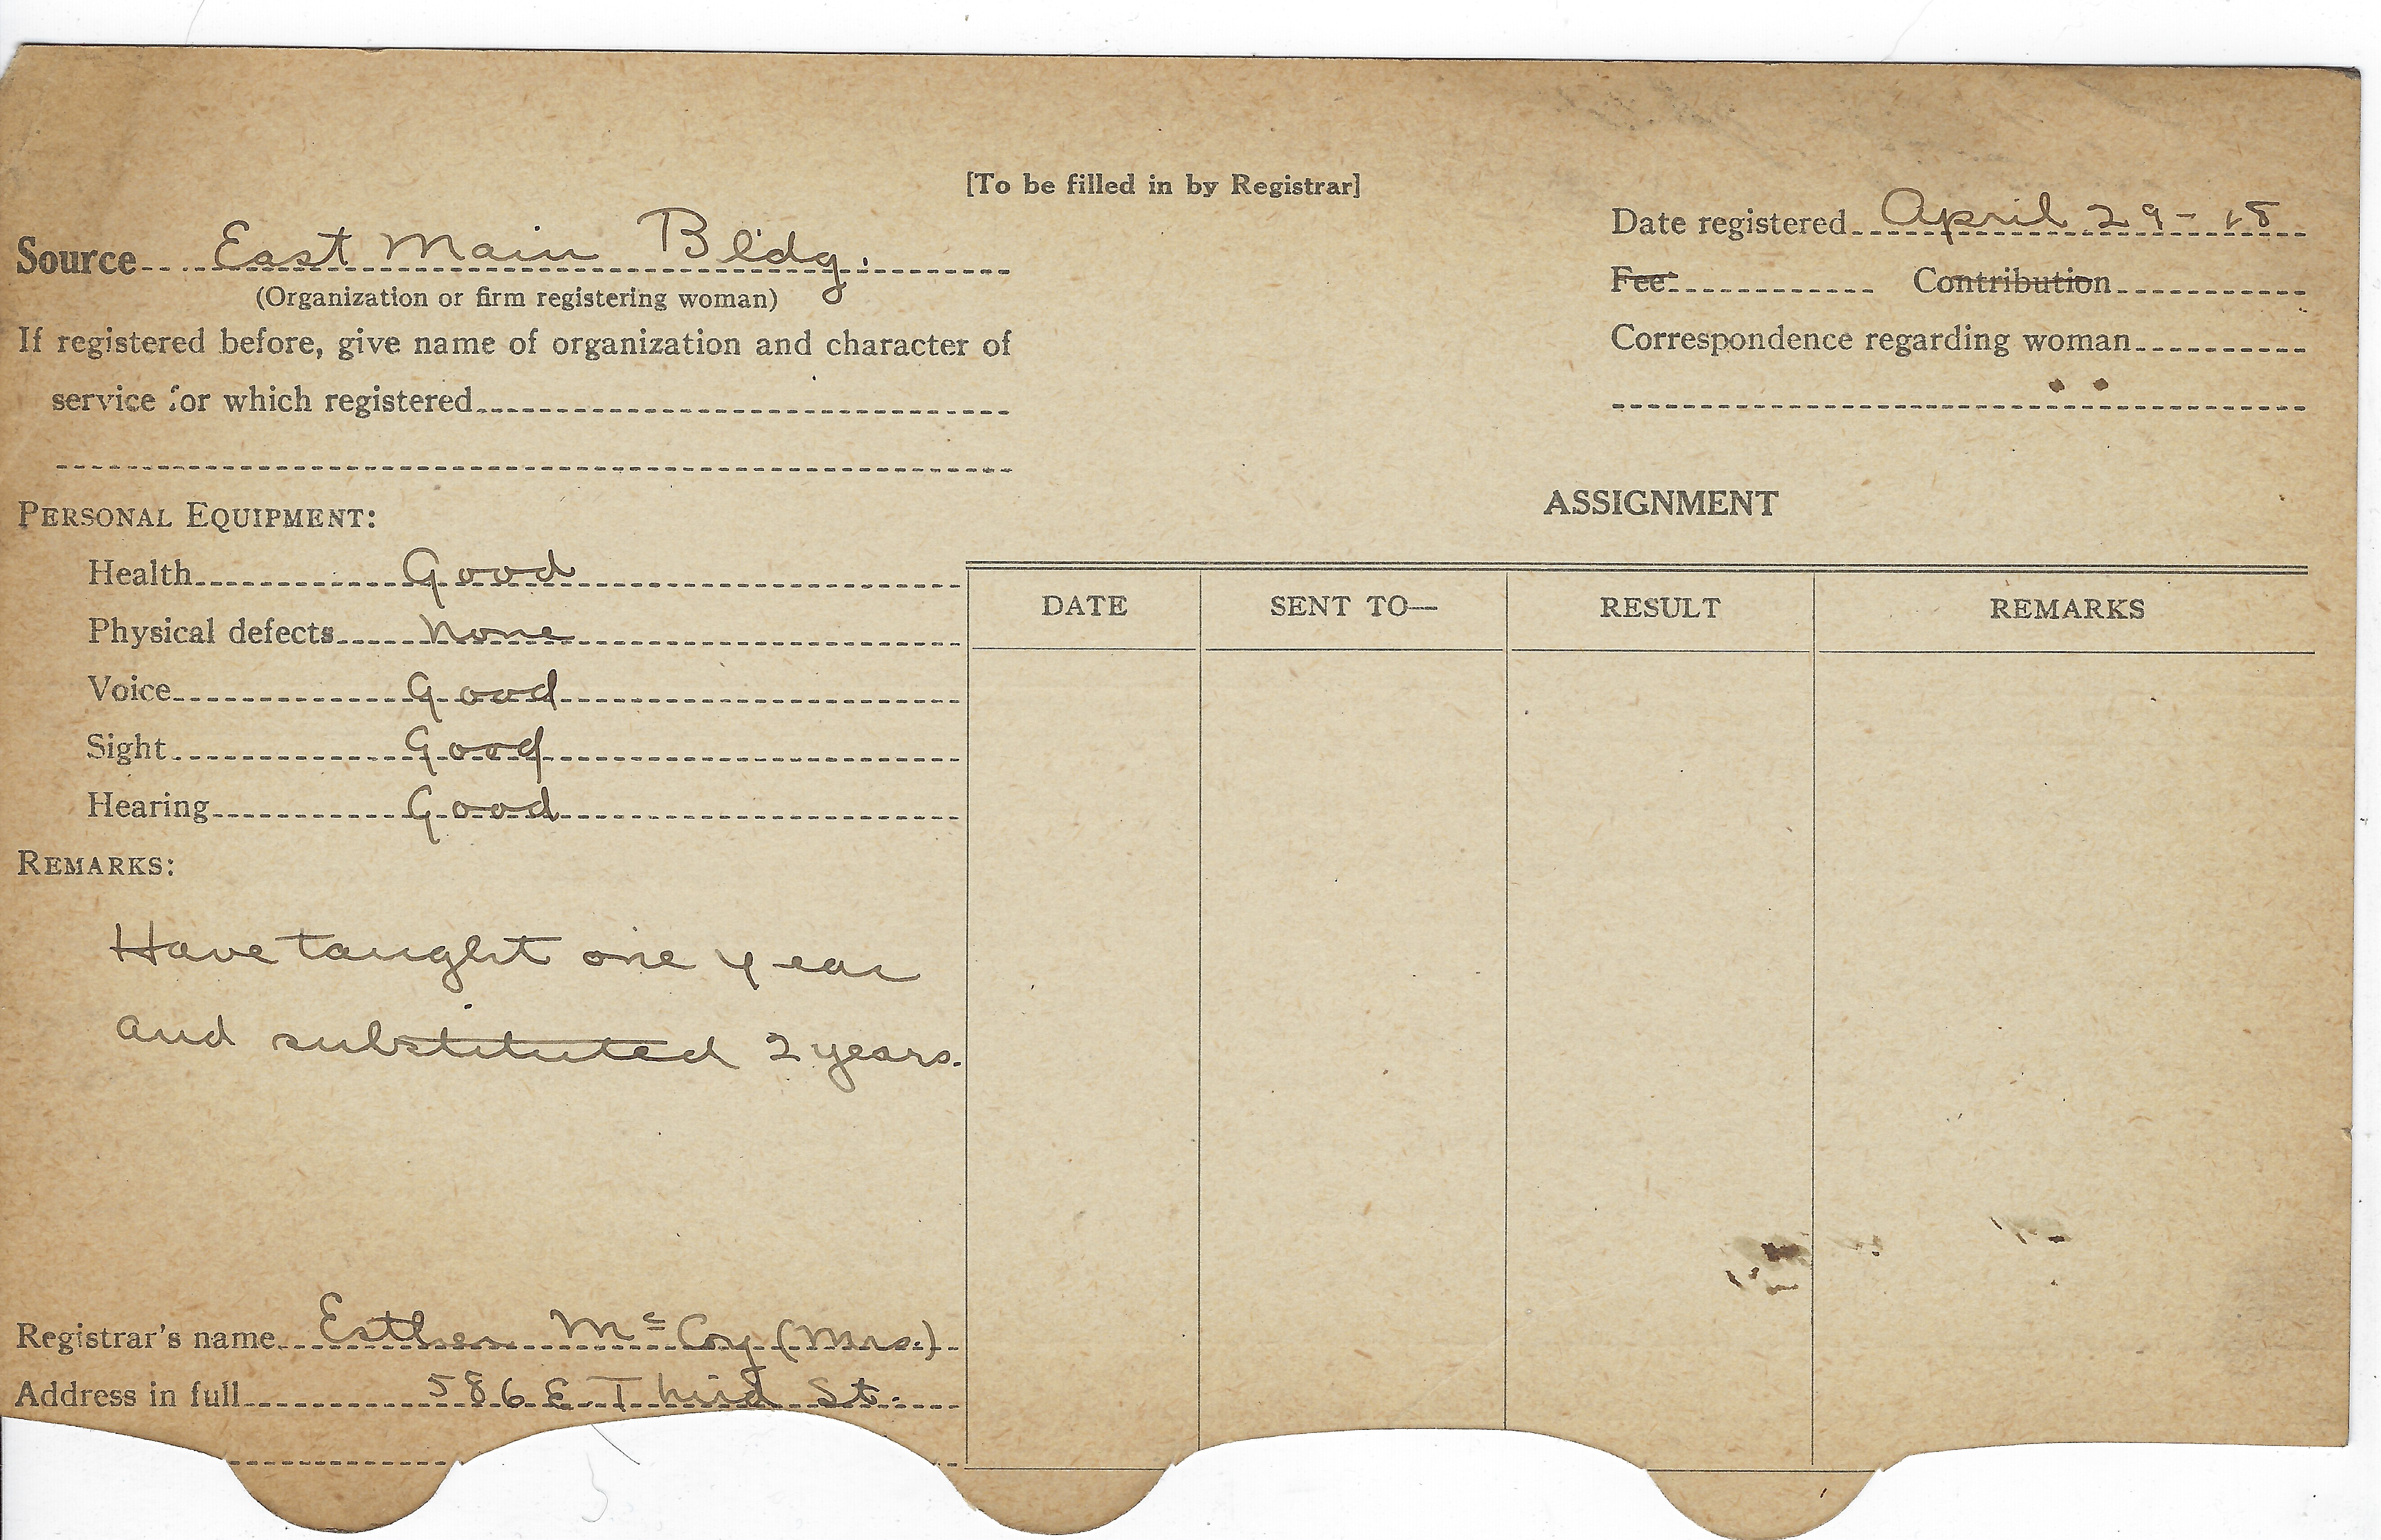 [To be filled in by Registrar]
Source East Main Bldg.
(Organization or firm registering woman)
If registered before, give name of organization and character of
service for which registered
Date registered April 29-18
Fee: Contribution
Correspondence regarding woman
PERSONAL EQUIPMENT:
Health Good
Physical defects None
Voice Good
Sight Good
Hearing Good
REMARKS:
Have taught one year
and substituted 2 years.
Registrar's name Esther Mc Coy (Mrs.)
Address in full 586 E. Third St.
ASSIGNMENT
DATE SENT TO— RESULT REMARKS